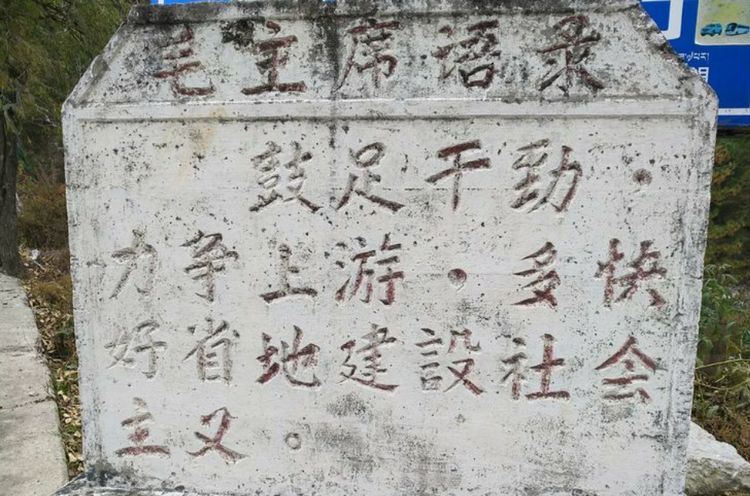 毛主席语录
鼓足干劲，
力争上游，多快
好省地建設社会
主义。